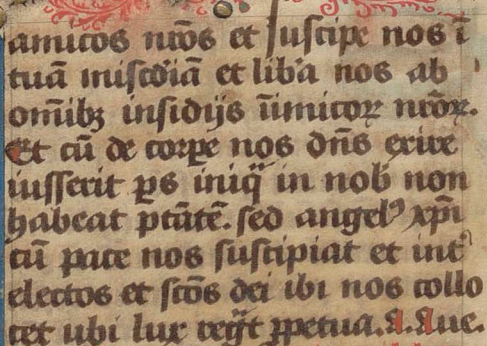 amicos nr̄os et suscipe nos ī
tuā miscd̄iā et lib̓a nos ab
om̄ibꝫ insidijs īimicoꝝ nr̄oꝝ.
Et cū de corꝑe nos dn̄s exire
iusserit ꝑs iniq̄ in nob̄ non
habeat ptātē. sed angelꝰ xp̄i
cū pace nos suscipiat et int̓
electos et sc̄os dei ibi nos collo
cet ubi lux
ꝑpetua. A. Aue.